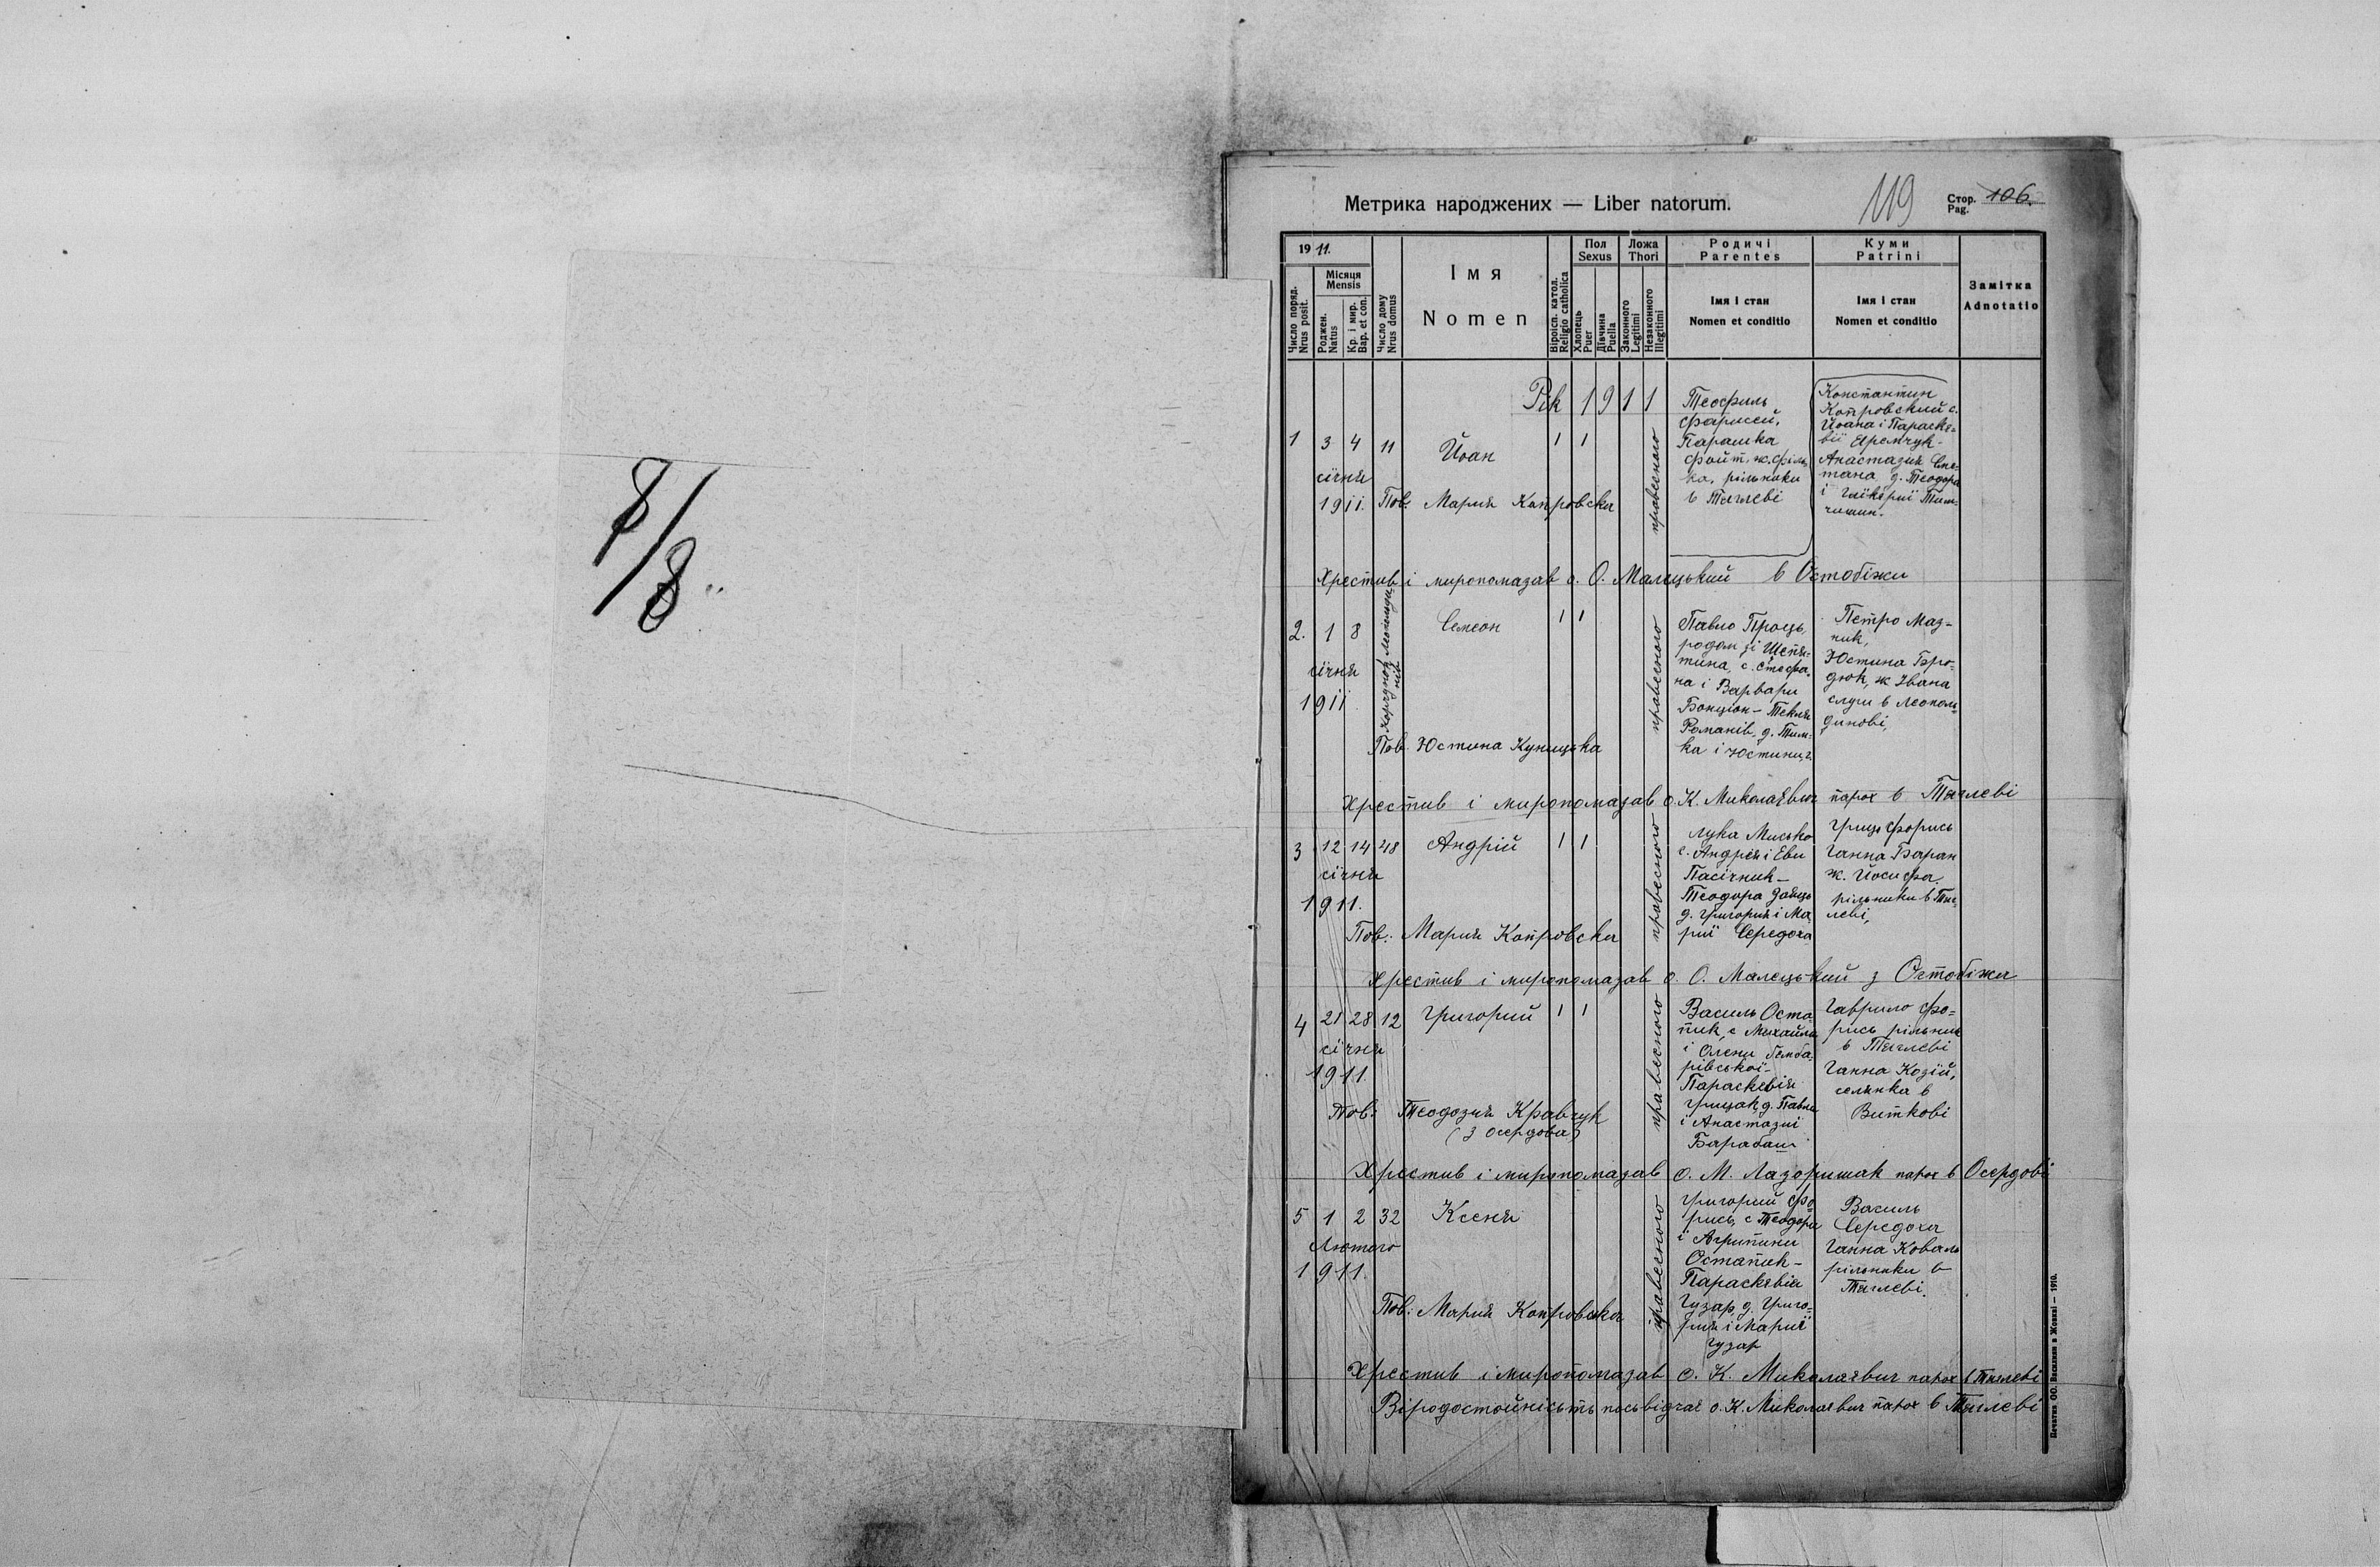 8/8
Метрика народжених — Liber natorum.
119
Стор. 106.
Pag.
19 11.
Число поряд.
Nrus posit.
Місяця
Mensis
Роджен.
Natus
Кр. і мир.
Bap. et con.
Число дому
Nrus domus
Імя
Nomen
Віроісп. катол.
Religio catholica
Пол
Sexus
Хлопець
Puer
Дівчина
Puella
Ложа
Thori
Законного
Legitimi
Незаконного
Illegitimi
Родичі
Parentes
Імя і стан
Nomen et conditio
Куми
Patrini
Імя і стан
Nomen et conditio
Замітка
Adnotatio
Рік 1911
1 3 4 11 Йоан 1 1
січня
1911. Пов. Мария Капровска
правесного
Теофиль
Фарисей,
Парашка
ка, рільники
в Тяглеві
Константин
Копровский с.
Йоана і Параске-
вії Яремчук-
Анастазия
тана д. Теодора
і Глїкерії Тим-
чишин.
Хрестив і миропомазав о. О. Малецький в Остобіжи
2. 1 8 Семеон 1 1
січня
1911
правесного
Пов. Юстина Куницька
Павло Проць,
родом зі Щепя-
тина, с. Стефа-
на і Варвари
Бонціон - Текля
Романів, д. Тим-
ка і Юстини
Петро Маз-
ник,
Юстина Бро-
дюк, ж Івана
слуги в Леополь-
динові,
Хрестив і миропомазав о. К. Миколаєвич парох в Тяглеві
3 12 14 48 Андрій 1 1
січня
1911.
правесного
Пов: Мария Копровска
Лука Мисько
с. Андрея і Еви
Пасічник -
Теодора Заяць
д. Григория і Ма-
рії Середоха
Гриць Форись
Ганна Баран
ж. Йосифа
рільники в Тяг-
леві,
Хрестив і миропомазав о. О. Малецький з Остобіжа
4 21 28 12 Григорий 1 1
січня
1911.
правесного
Пов: Теодозия Кравчук
(з Осердова)
Василь Оста-
пик, с Михайла
і Олени Бемба-
рівської -
Параскевія
Грицак д. Павла
і Анастазії
Барабаш
Гаврило Фо-
рись рільник
в Тяглеві
Ганна Козїй,
селянка в
Виткові
Хрестив і миропомазав о. М. Лазоришак парох в Осердові
5 1 2 32 Ксеня
Лютого
1911.
правесного
Пов: Мария Копровска
Григорий Фо-
рись, с Теодора
і Агрипини
Остапик -
Параскевія
Гузар, д. Григо-
рия і Мариї
Гузар
Василь
Середоха
Ганна Коваль
рільники в
Тяглеві.
Хрестив і миропомазав о. К. Миколаєвич парох в Тяглеві
Віродостойність посьвідчає о. К. Миколаєвич парох в Тяглеві
Печатня ОО. Василиян в Жовкві — 1910.